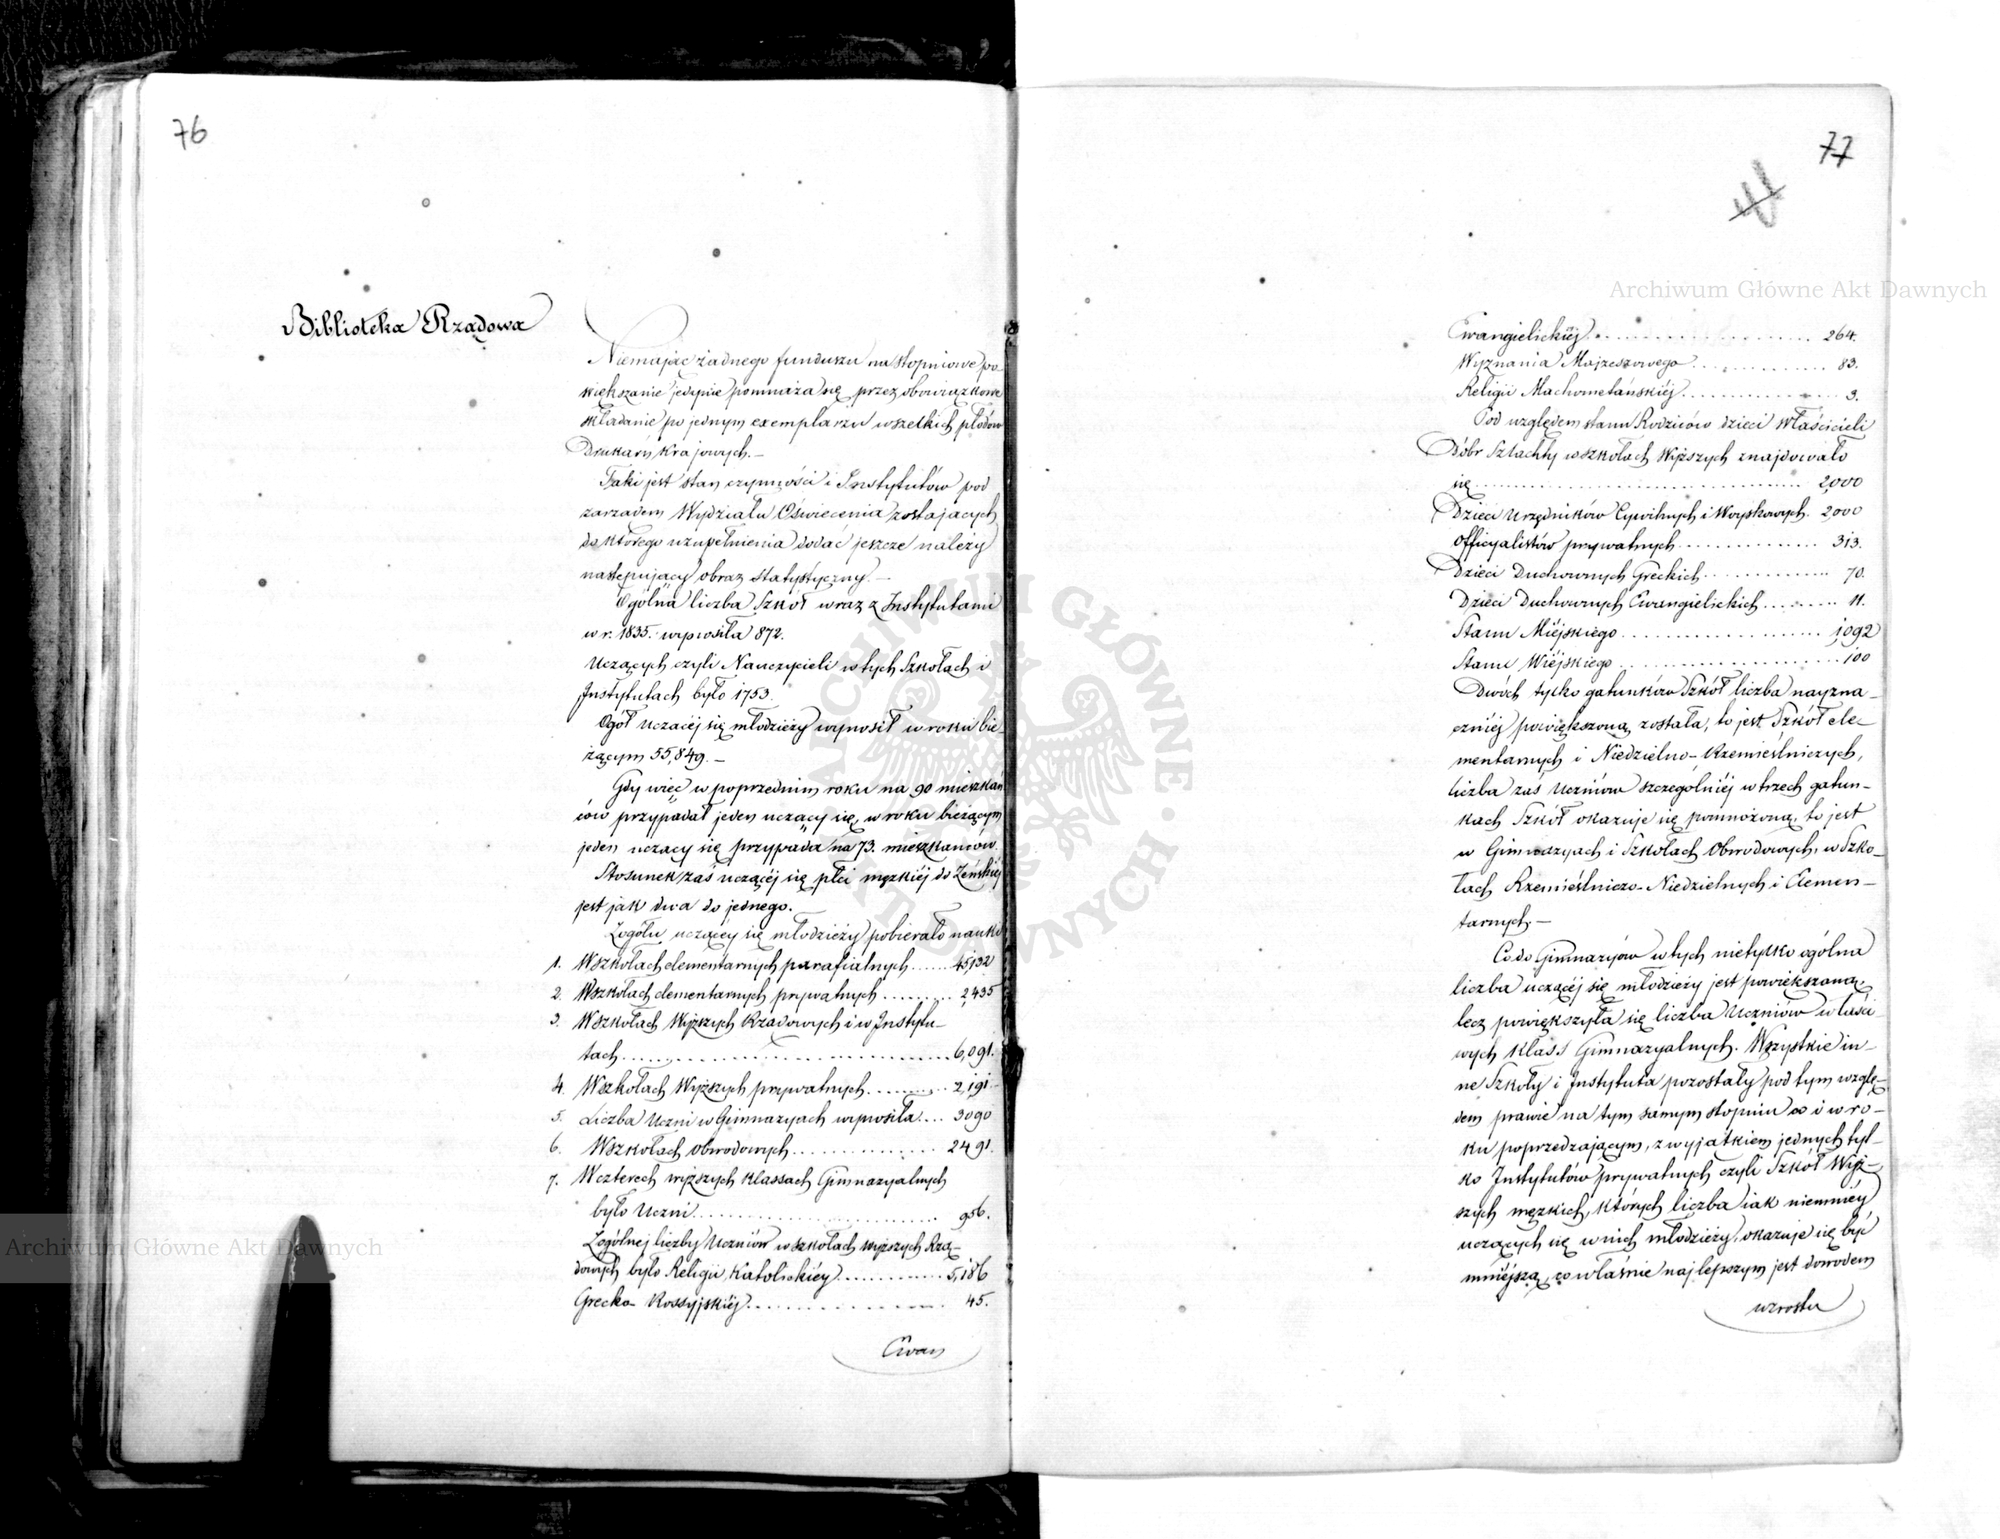 76
Biblioteka Rządowa
Niemając żadnego funduszu na stopniowe po-
większanie jedynie pomnaża się przez obowiązkowe
składanie po jednym exemplarzu wszelkich płodów
Drukarń Krajowych. —
Taki jest stan czynności i Instytutów pod
zarządem Wydziału Oświecenia zostających
do którego uzupełnienia dodać jeszcze należy
następujący obraz statystyczny. —
Ogólna liczba Szkół wraz z Instytutami
w r. 1835. wynosiła 872.
Uczących czyli Nauczycieli w tych Szkołach i
Instytutach było 1753.
Ogół uczącéj się młodzieży wynosił w roku bie-
żącym 55,849. —
Gdy więc w poprzednim roku na 90 mieszkań
ców przypadał jeden uczący się, w roku bieżącym
jeden uczący się przypada na 73. mieszkańców.
Stosunek zaś uczącéj się płci męzkiéj do Żeńskiéj
jest jak dwa do jednego.
Zogółu uczącéy się młodzieży pobierało nauki
1. W szkołach elementarnych parafialnych ...... 45,132
2. W szkołach elementarnych prywatnych .......... 2,435
3. W szkołach Wyższych Rządowych i w Instytu-
tach .......... 6,091.
4. W szkołach Wyższych prywatnych .......... 2,191.
5. Liczba Uczni w Gimnazyach wynosiła .... 3090
6. W szkołach obwodowych .......... 2491.
7. W czterech wyższych klassach Gimnazyalnych
było Uczni .......... 956.
Zogólnej liczby Uczniów w szkołach wyższych Rzą-
dowych było Religii Katolickiéy .......... 5,186
Grecko Rossyjskiéj .......... 45.
Ewan
77
Ewangielickiéj .......... 264.
Wyznania Mojżeszowego .......... 83.
Religii Machometańskiéj .......... 3.
Pod względem stanu Rodziców dzieci właścicieli
Dóbr Szlachty w szkołach Wyższych znajdowało
się .......... 2,000
Dzieci Urzędników Cywilnych i Woyskowych. 2,000
Officyalistów prywatnych .......... 313.
Dzieci Duchownych Greckich .......... 70.
Dzieci Duchownych Ewangielickich .......... 11.
Stanu Miéjskiego .......... 1,092
Stanu Wiéjskiego .......... 100
Dwóch tylko gatunków Szkół liczba nayzna-
czniéj powiększoną została, to jest Szkół ele-
mentarnych i Niedzielno-Rzemieślniczych,
liczba zaś Uczniów szczególniéj w trzech gatun-
kach Szkół okazuje się pomnożoną, to jest
w Gimnazyach i Szkołach Obwodowych, w Szko-
łach Rzemieślniczo-Niedzielnych i Elemen-
tarnych. —
Co do Gimnazyów w tych nietylko ogólna
liczba uczącéj się młodzieży jest powiększoną,
lecz powiększyła się liczba Uczniów właści
wych Klass Gimnazyalnych. Wszystkie in-
ne Szkoły i Instytuta pozostały pod tym wzglę-
dem prawie na tym samym stopniu co i w ro-
ku poprzedzającym, z wyjątkiem jednych tyl-
ko Instytutów prywatnych czyli Szkół Wyż-
szych męzkich, których liczba iak niemniéy
uczących się w nich młodzieży, okazuje się być
mniéjszą, co właśnie najlepszym jest dowodem
wzrostu
Archiwum Główne Akt Dawnych
Archiwum Główne Akt Dawnych
ARCHIWUM GŁÓWNE AKT DAWNYCH